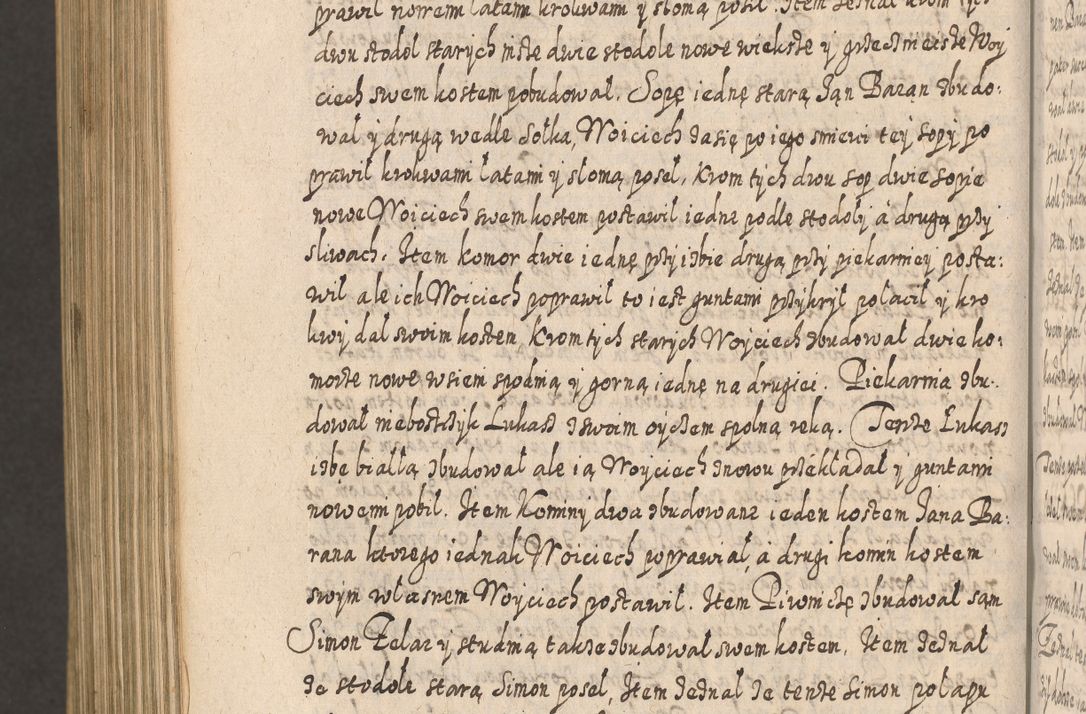 prawił nowemi łatami krokwami y słomą posił. Item zeznał krom tych
dwu stodol starych insze dwie stodole nowe wieksze y grzecznieisze Woy
ciech swem kostem pobudował. Sopę iednę starą Jan Baran zbudo:
wał y drugą wedle Sołka, Woiciech zasię po iego smierci tey sopy po
prawił krokwami łatami y słomą poseł, Krom tych dwu sop dwie sopie
nowe Woiciech swem kostem postawił iednę podle stodoły a drugą przy
sliwach. Item komor dwie iednę przy izbie drugą przy piekarniey posta:
wił ale ich Woiciech poprawił to iest guntami przykrył połacił y kro
kwy dał swoim kostem, Krom tych starych Woyciech zbudował dwie ko:
morze nowe w sieni spodnią y gorną iednę na drugiei. Piekarnia zbu:
dował nieboszczyk Lukasz z swoim oyczem spolną reką. Tenze Łukasz
izbę białłą zbudował ale ią Woyciech znowu przekładał y guntami
nowemi pobił. Item Kominy dwa zbudowane ieden kostem Jana Ba:
rana ktorego iednak Woiciech poprawiał, a drugi komin kostem
swym własnem Woyciech postawił. Item Piwniczę zbudował sam
Simon Zelaz y studnią takze zbudował swem kostem. Item zeznał
ze stodołe starą Simon poseł, Item zeznał ze tenze Simon połapu